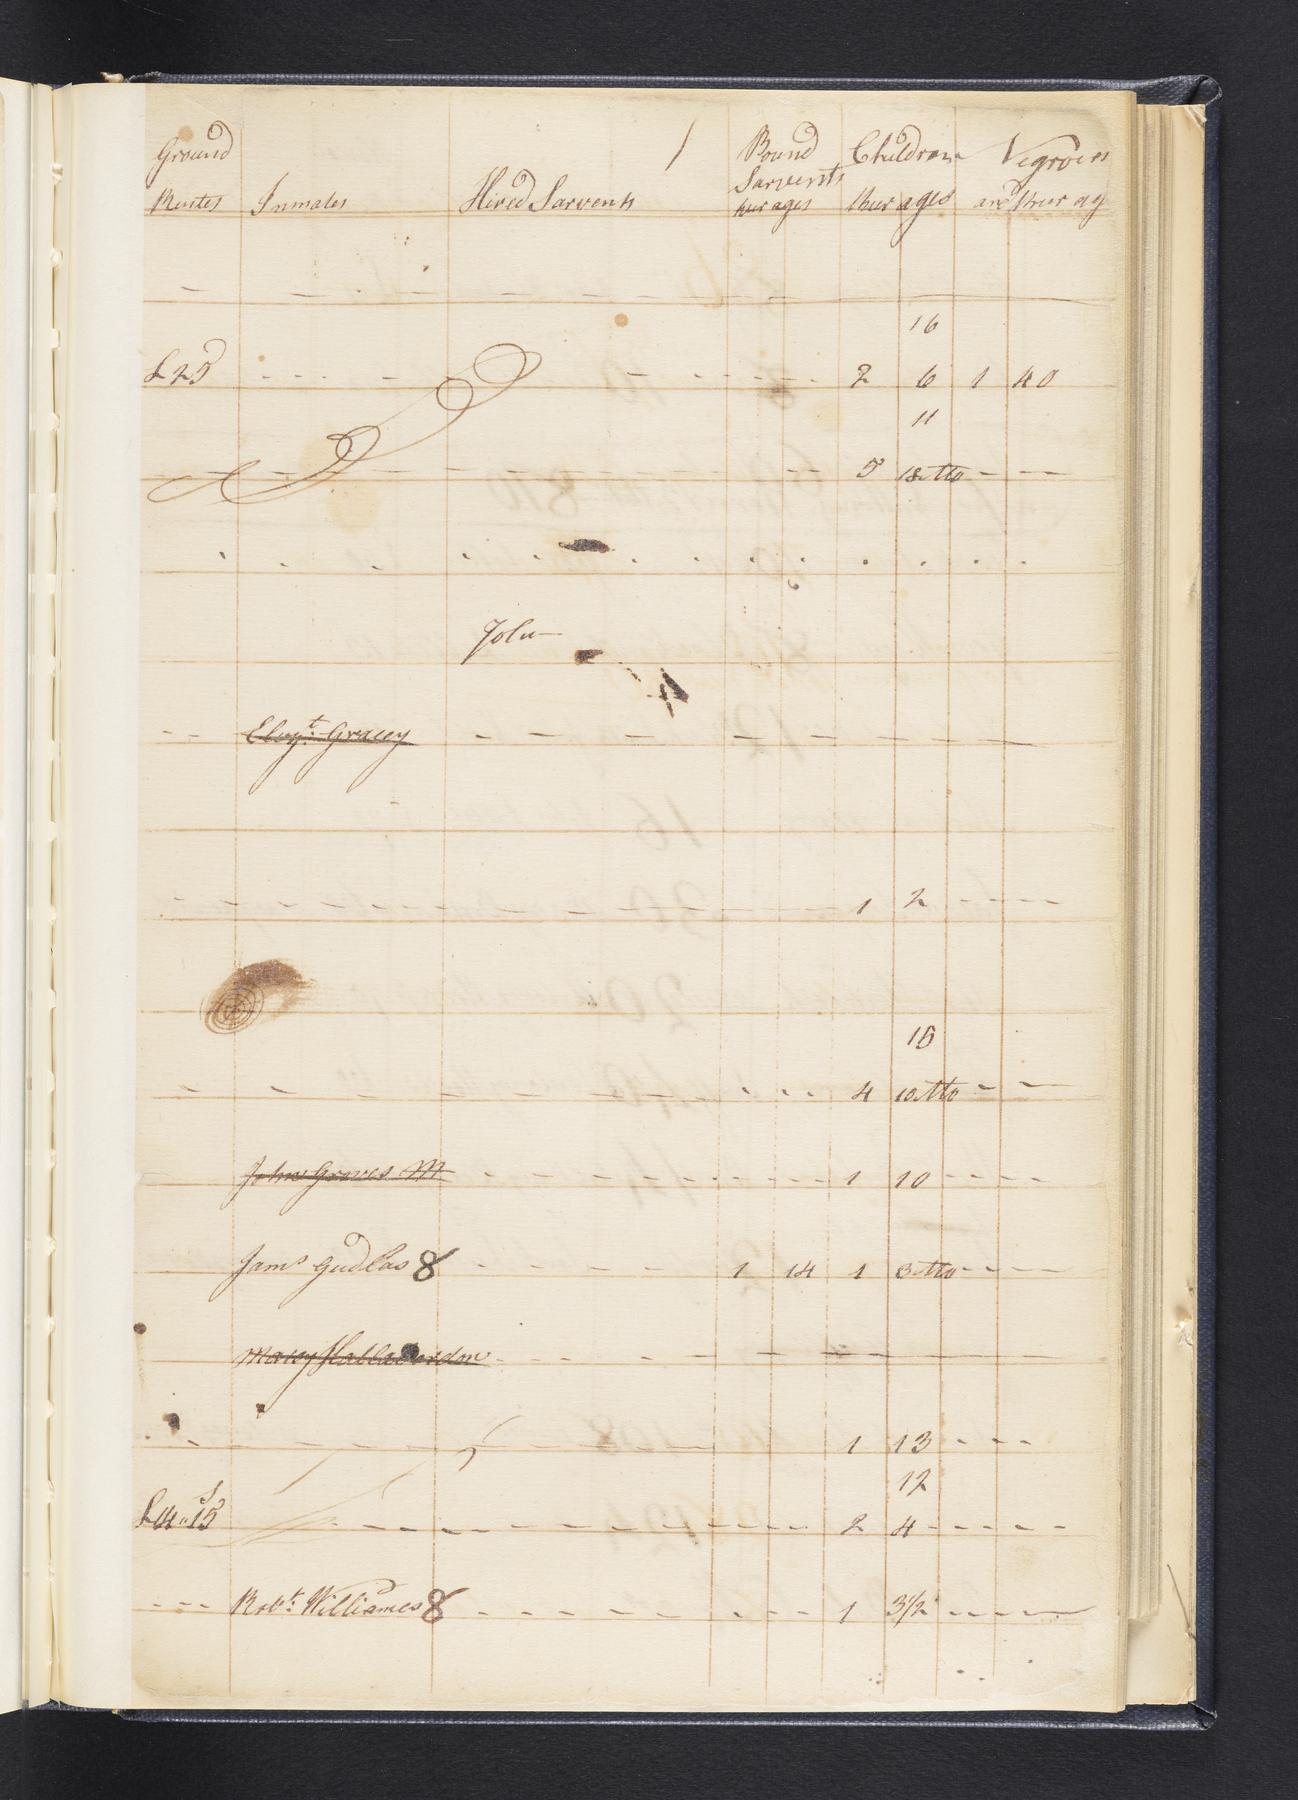 Ground Rentes Inmates Hired Sarvents Bound Sarvents their ages Children their ages Negroes and their ag
16
£25 2 6 1 40
11
5 18 tto
John
Elizt. Gracey
1 2
15
4 10 tto
John Graves M 1 10
Jams Gudlas 8 1 14 1 3 tto
Marcy
1 13
12
£4 " 15 S 2 4
Robt: Williames 8 1 3 1/2